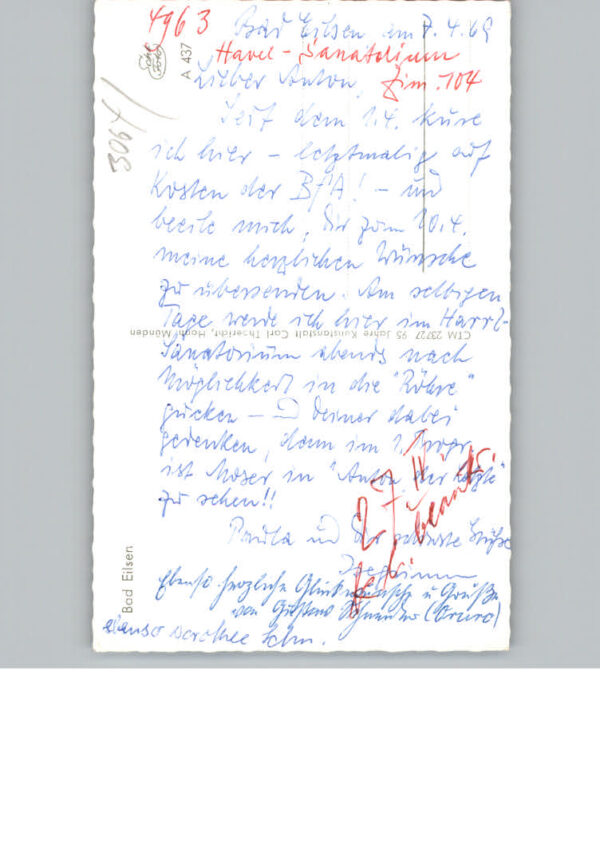 4963
Bad Eilsen am 7.4.69
Harrl-Sanatorium
Lieber Anton, Zim. 104
Seit dem 1.4. kure
ich hier – letztmalig auf
Kosten der BfA! – und
beeile mich, Dir zum 10.4.
meine herzlichen Wünsche
zu übersenden. Am selbigen
Tage werde ich hier im Harrl-
Sanatorium abends nach
Möglichkeit in die "Röhre"
gucken – u Deiner dabei
gedenken, denn im 1. Progr.
ist Moser in "Anton der Letzte"
zu sehen!!
Paula und Dir schönste Grüße
Ebenso herzliche Glückwünsche u Grüße
von Schneider (Oruro)
ebenso Dorothee Schn.
27.4.
beantw.
3064/
A 437
CTM 23727 95 Jahre Kunstanstalt Carl Thoericht, Hann. Münden
Bad Eilsen